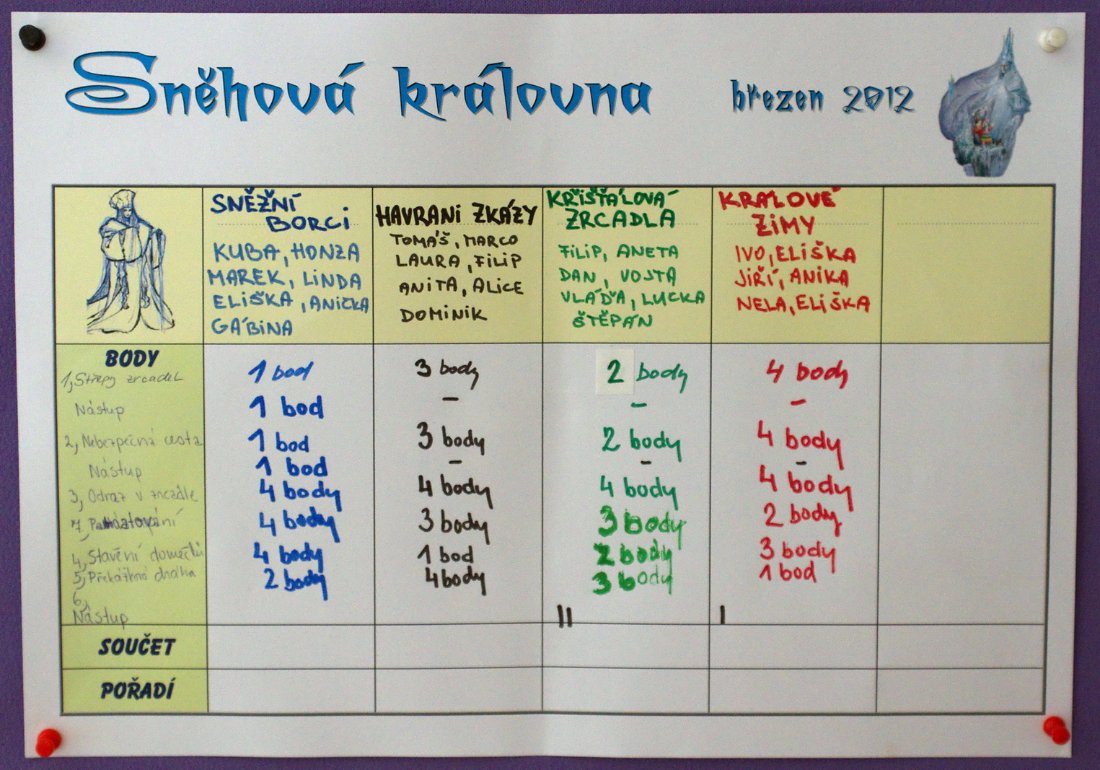 Sněhová královna
březen 2012
SNĚŽNÍ
BORCI
KUBA, HONZA
MAREK, LINDA
ELIŠKA, ANIČKA
GÁBINA
HAVRANI ZKÁZY
TOMÁŠ, MARCO
LAURA, FILIP
ANITA, ALICE
DOMINIK
KŘIŠŤÁLOVÁ
ZRCADLA
FILIP, ANETA
DAN, VOJTA
VLÁĎA, LUCKA
ŠTĚPÁN
KRÁLOVÉ
ZIMY
IVO, ELIŠKA
JIŘÍ, ANIKA
NELA, ELIŠKA
BODY
1, Střepy zrcadel 1 bod 3 body 2 body 4 body
Nástup 1 bod – – –
2, Nebezpečná cesta 1 bod 3 body 2 body 4 body
Nástup 1 bod – – –
3, Odraz v zrcadle 4 body 4 body 4 body 4 body
7, 4 body 3 body 3 body 2 body
4, Stavění domečků 4 body 1 bod 2 body 3 body
5, Překážková dráha 2 body 4 body 3 body 1 bod
6,
Nástup II I
SOUČET
POŘADÍ